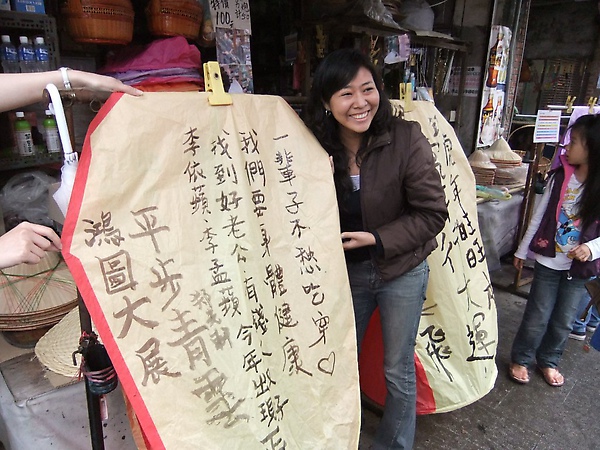 特價
100
一輩子不愁吃穿♡
我們要身體健康
找到好老公,有錢、今年出現
李依蘋、李孟蘋
平步青雲
鴻圖大展
年旺旺
大運
飛